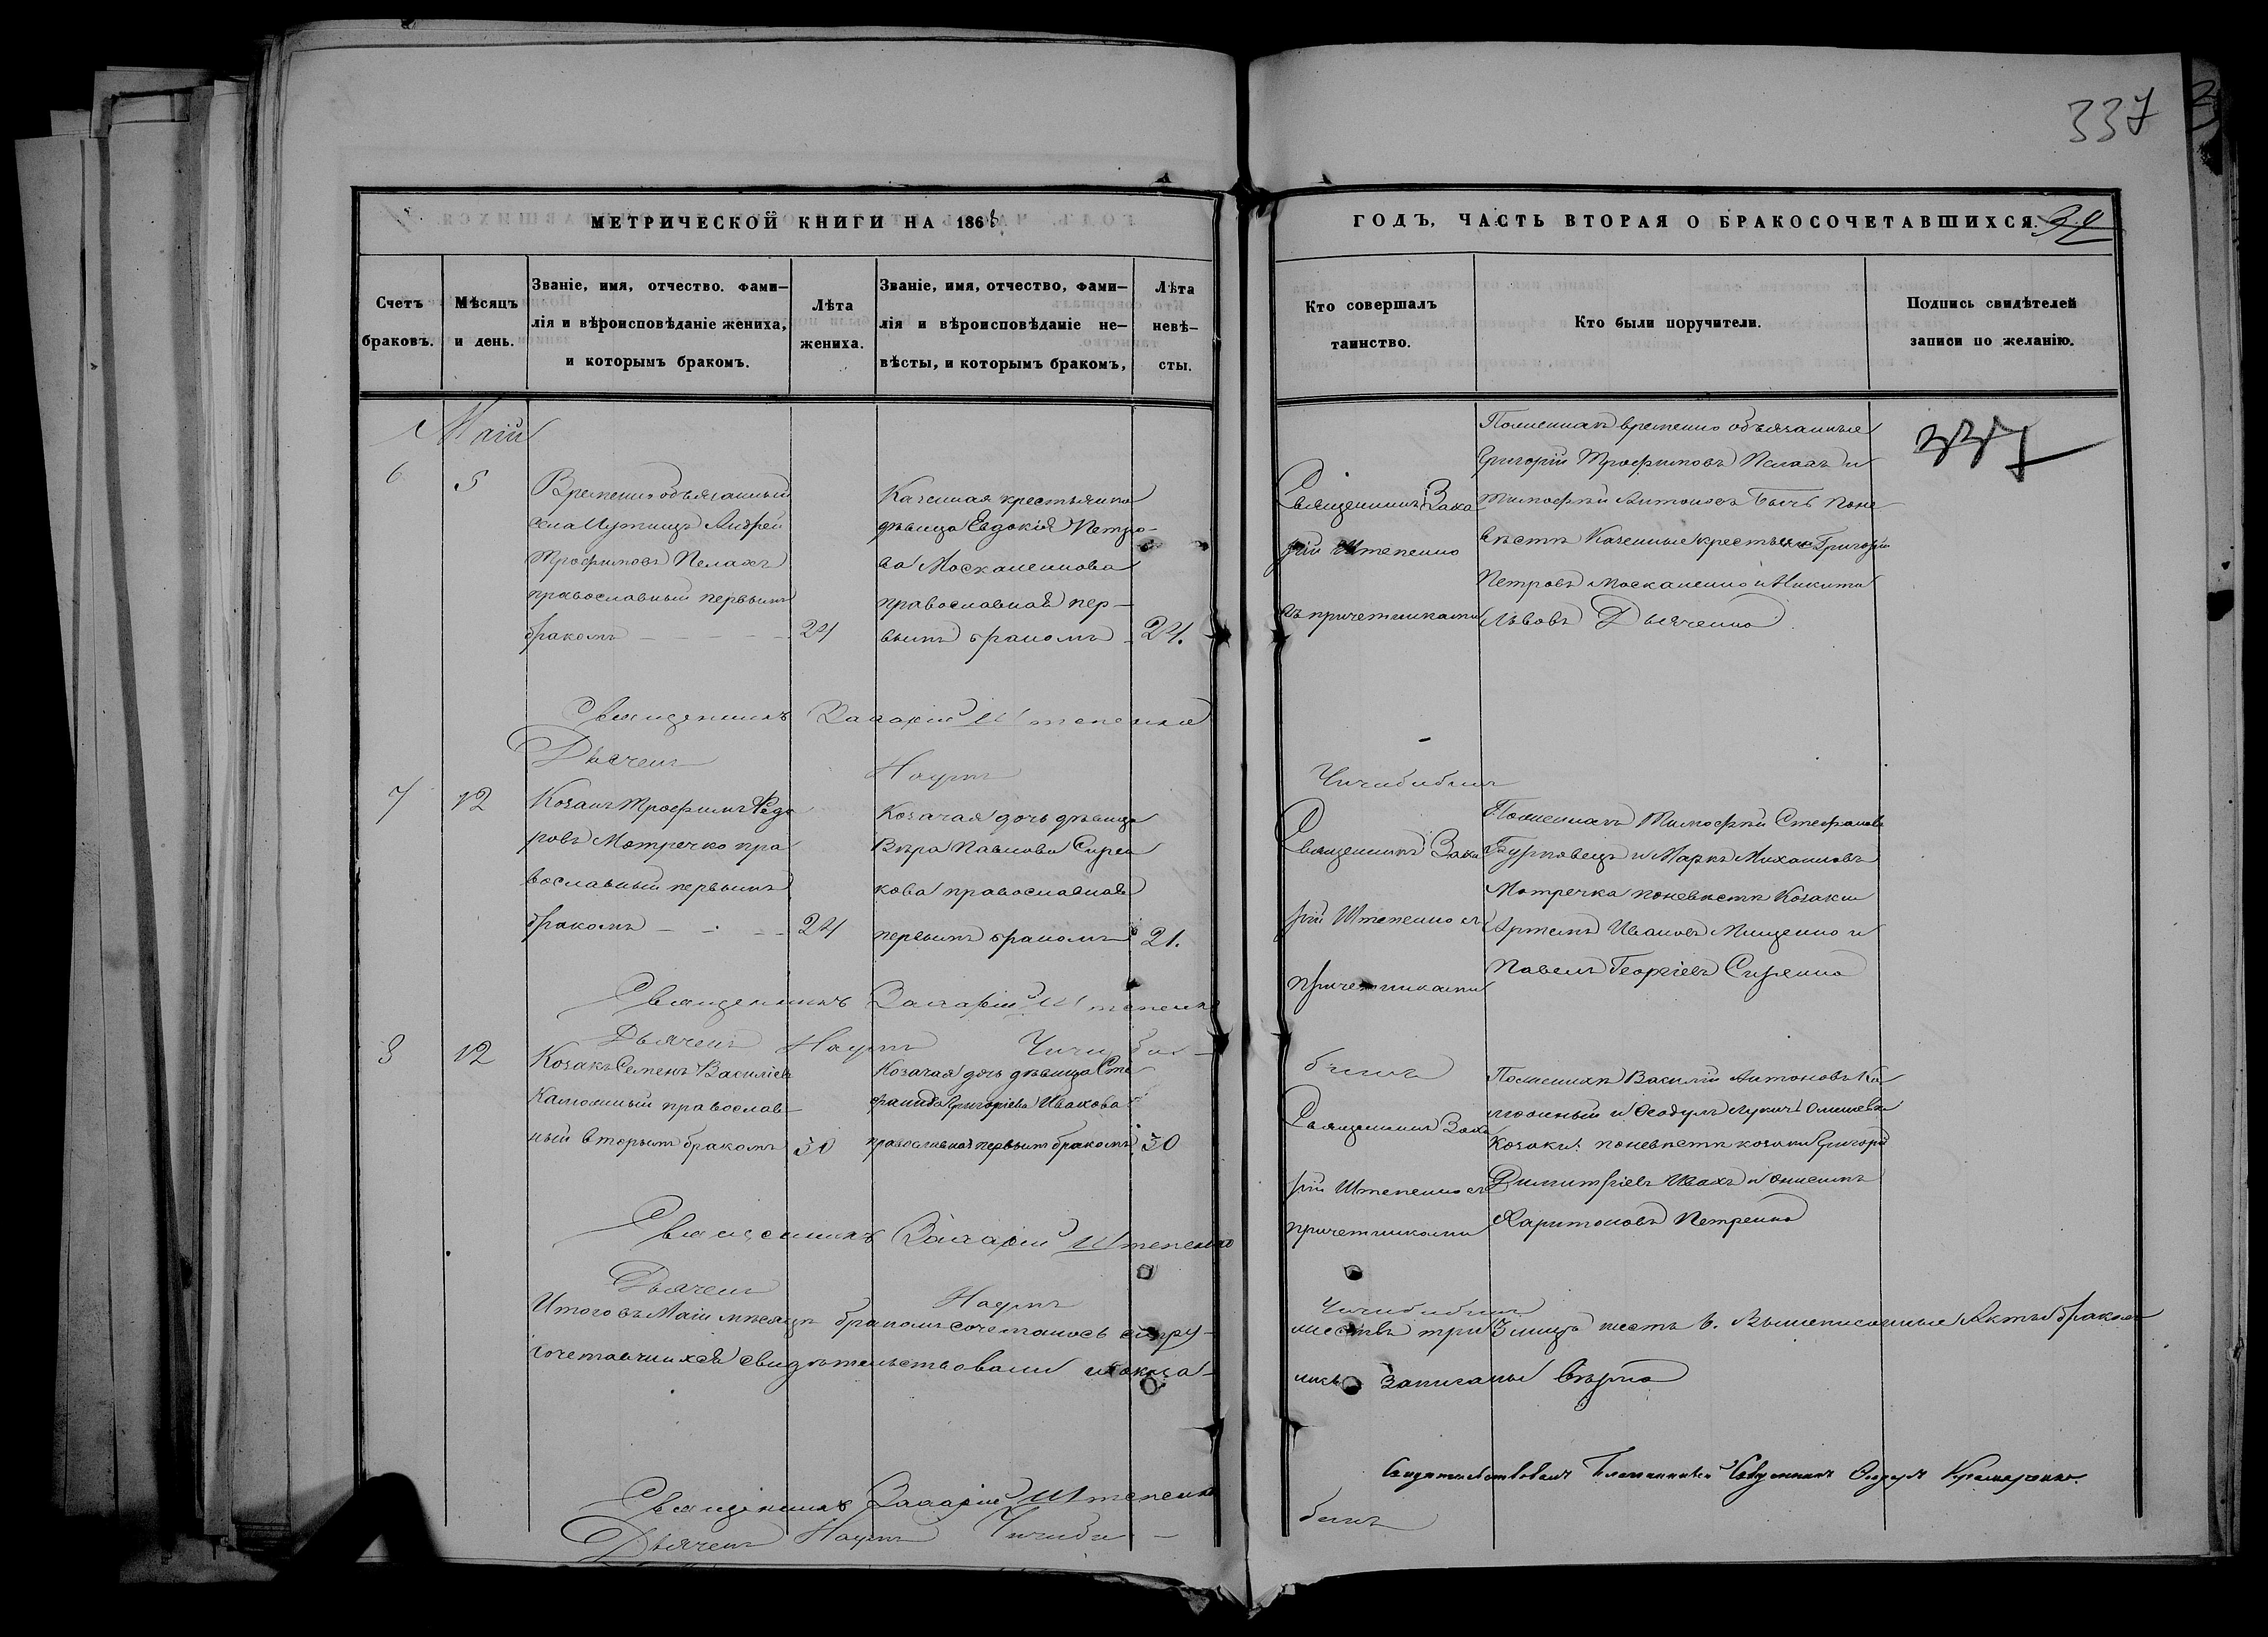 337
МЕТРИЧЕСКОЙ КНИГИ НА 1868
ГОДЪ, ЧАСТЬ ВТОРАЯ О БРАКОСОЧЕТАВШИХСЯ.
Счетъ браковъ.
Мѣсяцъ и день.
Званіе, имя, отчество. фами–
лія и вѣроисповѣданіе жениха,
и которымъ бракомъ.
Лѣта
жениха.
Званіе, имя, отчество, фами–
лія и вѣроисповѣданіе не–
вѣсты, и которымъ бракомъ,
Лѣта
невѣ–
сты.
Кто совершалъ
таинство.
Кто были поручители.
Подпись свидѣтелей
записи по желанію.
Маій
6
5
Временно обязанный
села Андрей
Трофимовъ Пелахъ
православный первымъ
бракомъ
24
Казенная крестьянка
дѣвица Евдокія Петро-
ва Москаленкова
православная пер–
вымъ бракомъ
24.
Священникъ Заха
рій Штепенко
съ причетниками
Поженихѣ временно обязанные
Григорій Трофимовъ Пелахъ и
Тимофѣй Антоновъ Поне
вѣстѣ Казенные крестьяне Григорій
Петровъ Москаленко и Никита
Львовъ Дьяченко
337
Священникъ Захарій Штепенко
Дьячекъ Наумъ
7
12
Козакъ Трофимъ Федо
ровъ Мотречко пра
вославный первымъ
бракомъ
24
Козачая дочь дѣвица
Вѣра Павлова
кова православная
первымъ бракомъ
21.
Священникъ Заха
рій Штепенко съ
причетниками
Поженихѣ Тимофѣй Стефановъ
и Маркъ Михаиловъ
Мотречка поневѣстѣ Козаки
Артемъ Ивановъ Мищенко и
Павелъ Георгіевъ
Священникъ Захарій Штепенко
Дьячекъ Наумъ
8
12
Козакъ Семенъ Василіевъ
православ–
ный вторымъ бракомъ
30
Козачая дочь дѣвица Сте
фанида Григоріева Ивахова
православная первымъ бракомъ
30
Священникъ Заха
рій Штепенко съ
причетниками
Поженихѣ Василій Антоновъ Ка
и Феодулъ Лукичъ
Козаки: поневѣстѣ козаки Григорій
Димитріевъ Ивахъ и Онисимъ
Харитоновъ Петренко
Священникъ Захарій Штепенко
Дьячекъ Наумъ
Итого въ Маіи мѣсяцѣ бракомъ сочеталось супру–
жествъ три 3 лицъ шесть 6. Вышеписанные Акты бракосо
четавшихся свидѣтельствовали и оказа–
лись записаны вѣрно
Священникъ Захарій Штепенко
Дьячекъ Наумъ